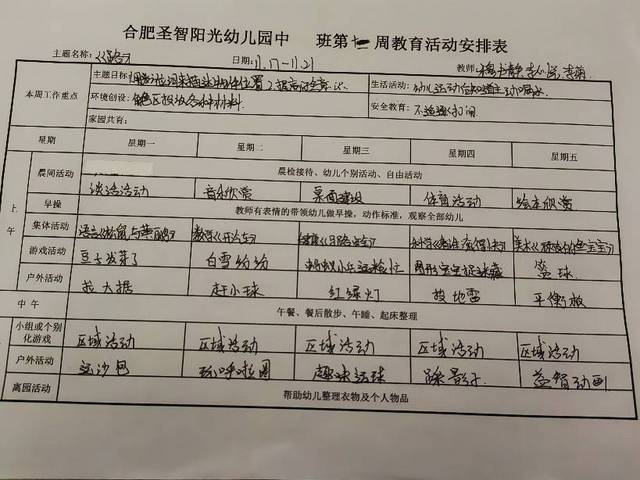 合肥圣智阳光幼儿园中 班第十一周教育活动安排表
主题名称: 日期: 11.17-11.21 教师:
本周工作重点 主题目标: 生活活动:
环境创设: 安全教育: 不追逐打闹
家园共育:
星期 星期一 星期二 星期三 星期四 星期五
上午 晨间活动 晨检接待、幼儿个别活动、自由活动
谈话活动 音乐欣赏 桌面建设 体育活动 绘本欣赏
早操 教师有表情的带领幼儿做早操,动作标准,观察全部幼儿
集体活动 语言 数学《开汽车》 健康 科学 美术
游戏活动 豆子发芽了 白雪纷纷 蚂蚁小兵运粮忙 图形宝宝捉迷藏 篮球
户外活动 拉大锯 赶小球 红绿灯 放地雷 平衡板
中午 午餐、餐后散步、午睡、起床整理
小组或个别化游戏 区域活动 区域活动 区域活动 区域活动 区域活动
户外活动 玩沙包 玩呼啦圈 趣味运球 踩影子 益智动画
离园活动 帮助幼儿整理衣物及个人物品